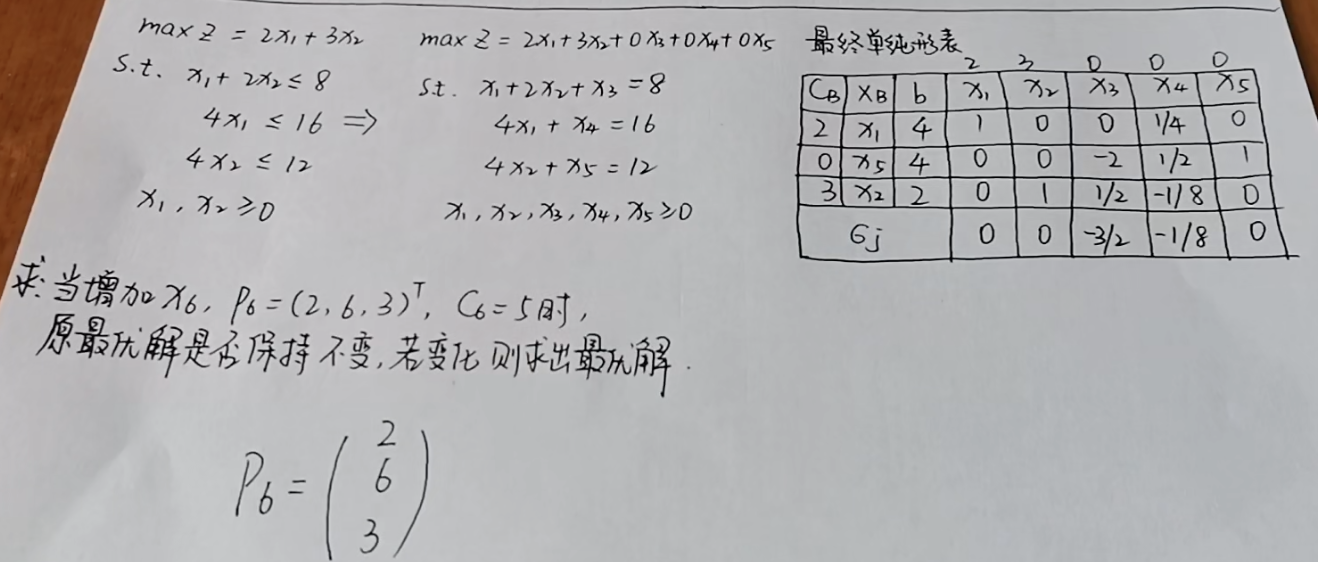 max Z = 2x₁ + 3x₂
s.t. x₁ + 2x₂ ≤ 8
4x₁ ≤ 16 ⇒
4x₂ ≤ 12
x₁, x₂ ≥ 0
max Z = 2x₁+3x₂+0x₃+0x₄+0x₅
s.t. x₁+2x₂+x₃ = 8
4x₁ + x₄ = 16
4x₂ + x₅ = 12
x₁, x₂, x₃, x₄, x₅ ≥ 0
最终单纯形表
2 3 0 0 0
C_B X_B b x₁ x₂ x₃ x₄ x₅
2 x₁ 4 1 0 0 1/4 0
0 x₅ 4 0 0 -2 1/2 1
3 x₂ 2 0 1 1/2 -1/8 0
σj 0 0 -3/2 -1/8 0
求:当增加x₆, P₆=(2,6,3)ᵀ, C₆=5时,
原最优解是否保持不变,若变化则求出最优解.
P₆ = (2
6
3)